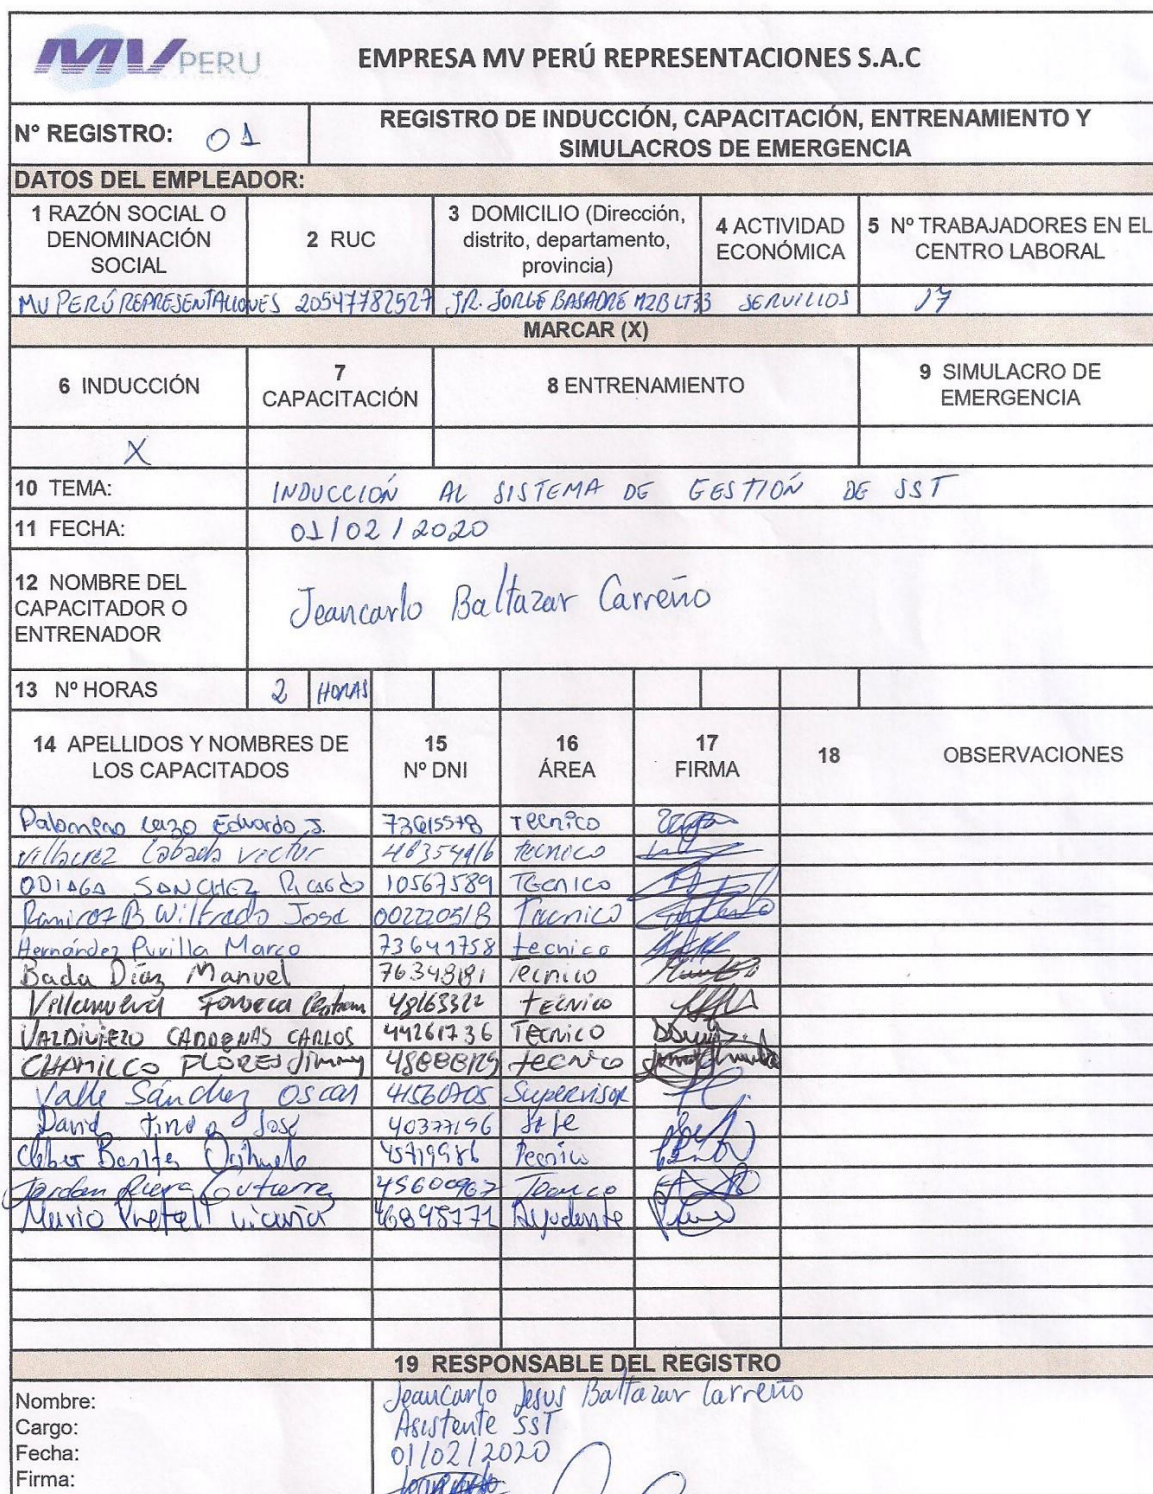 MV PERU
EMPRESA MV PERÚ REPRESENTACIONES S.A.C
N° REGISTRO: 01
REGISTRO DE INDUCCIÓN, CAPACITACIÓN, ENTRENAMIENTO Y
SIMULACROS DE EMERGENCIA
DATOS DEL EMPLEADOR:
1 RAZÓN SOCIAL O DENOMINACIÓN SOCIAL
2 RUC
3 DOMICILIO (Dirección, distrito, departamento, provincia)
4 ACTIVIDAD ECONÓMICA
5 Nº TRABAJADORES EN EL CENTRO LABORAL
MV PERÚ REPRESENTACIONES 20547782527 JR. JORGE BASADRE MZB LT33 SERVICIOS 17
MARCAR (X)
6 INDUCCIÓN
7 CAPACITACIÓN
8 ENTRENAMIENTO
9 SIMULACRO DE EMERGENCIA
X
10 TEMA: INDUCCIÓN AL SISTEMA DE GESTIÓN DE SST
11 FECHA: 01/02/2020
12 NOMBRE DEL CAPACITADOR O ENTRENADOR
Jeancarlo Baltazar Carreño
13 Nº HORAS 2 HORAS
14 APELLIDOS Y NOMBRES DE LOS CAPACITADOS
15 Nº DNI
16 ÁREA
17 FIRMA
18 OBSERVACIONES
Palomino Lazo Eduardo J. 73615578 Tecnico
Victor tecnico
ODIAGA SANCHEZ Ricardo 10567589 Tecnico
Ramirez B Wilfredo Jose 002220518 Tecnico
Hernández Purilla Marco 73641758 tecnico
Bada Díaz Manuel 76348181 Tecnico
Villanueva Fonseca 48163322 tecnico
VALDIVIEZO CARDENAS CARLOS 44261736 TECNICO
CHAMILCO FLORES Jimmy tecnico
Valle Sánchez Oscar Supervisor
David Jose 40377196 Jefe
Cleber Orihuela Tecnico
Jordan Gutierrez 45600967 Tecnico
Vicuña 46898771 Ayudante
19 RESPONSABLE DEL REGISTRO
Nombre: Jeancarlo Jesus Baltazar Carreño
Cargo: Asistente SST
Fecha: 01/02/2020
Firma: